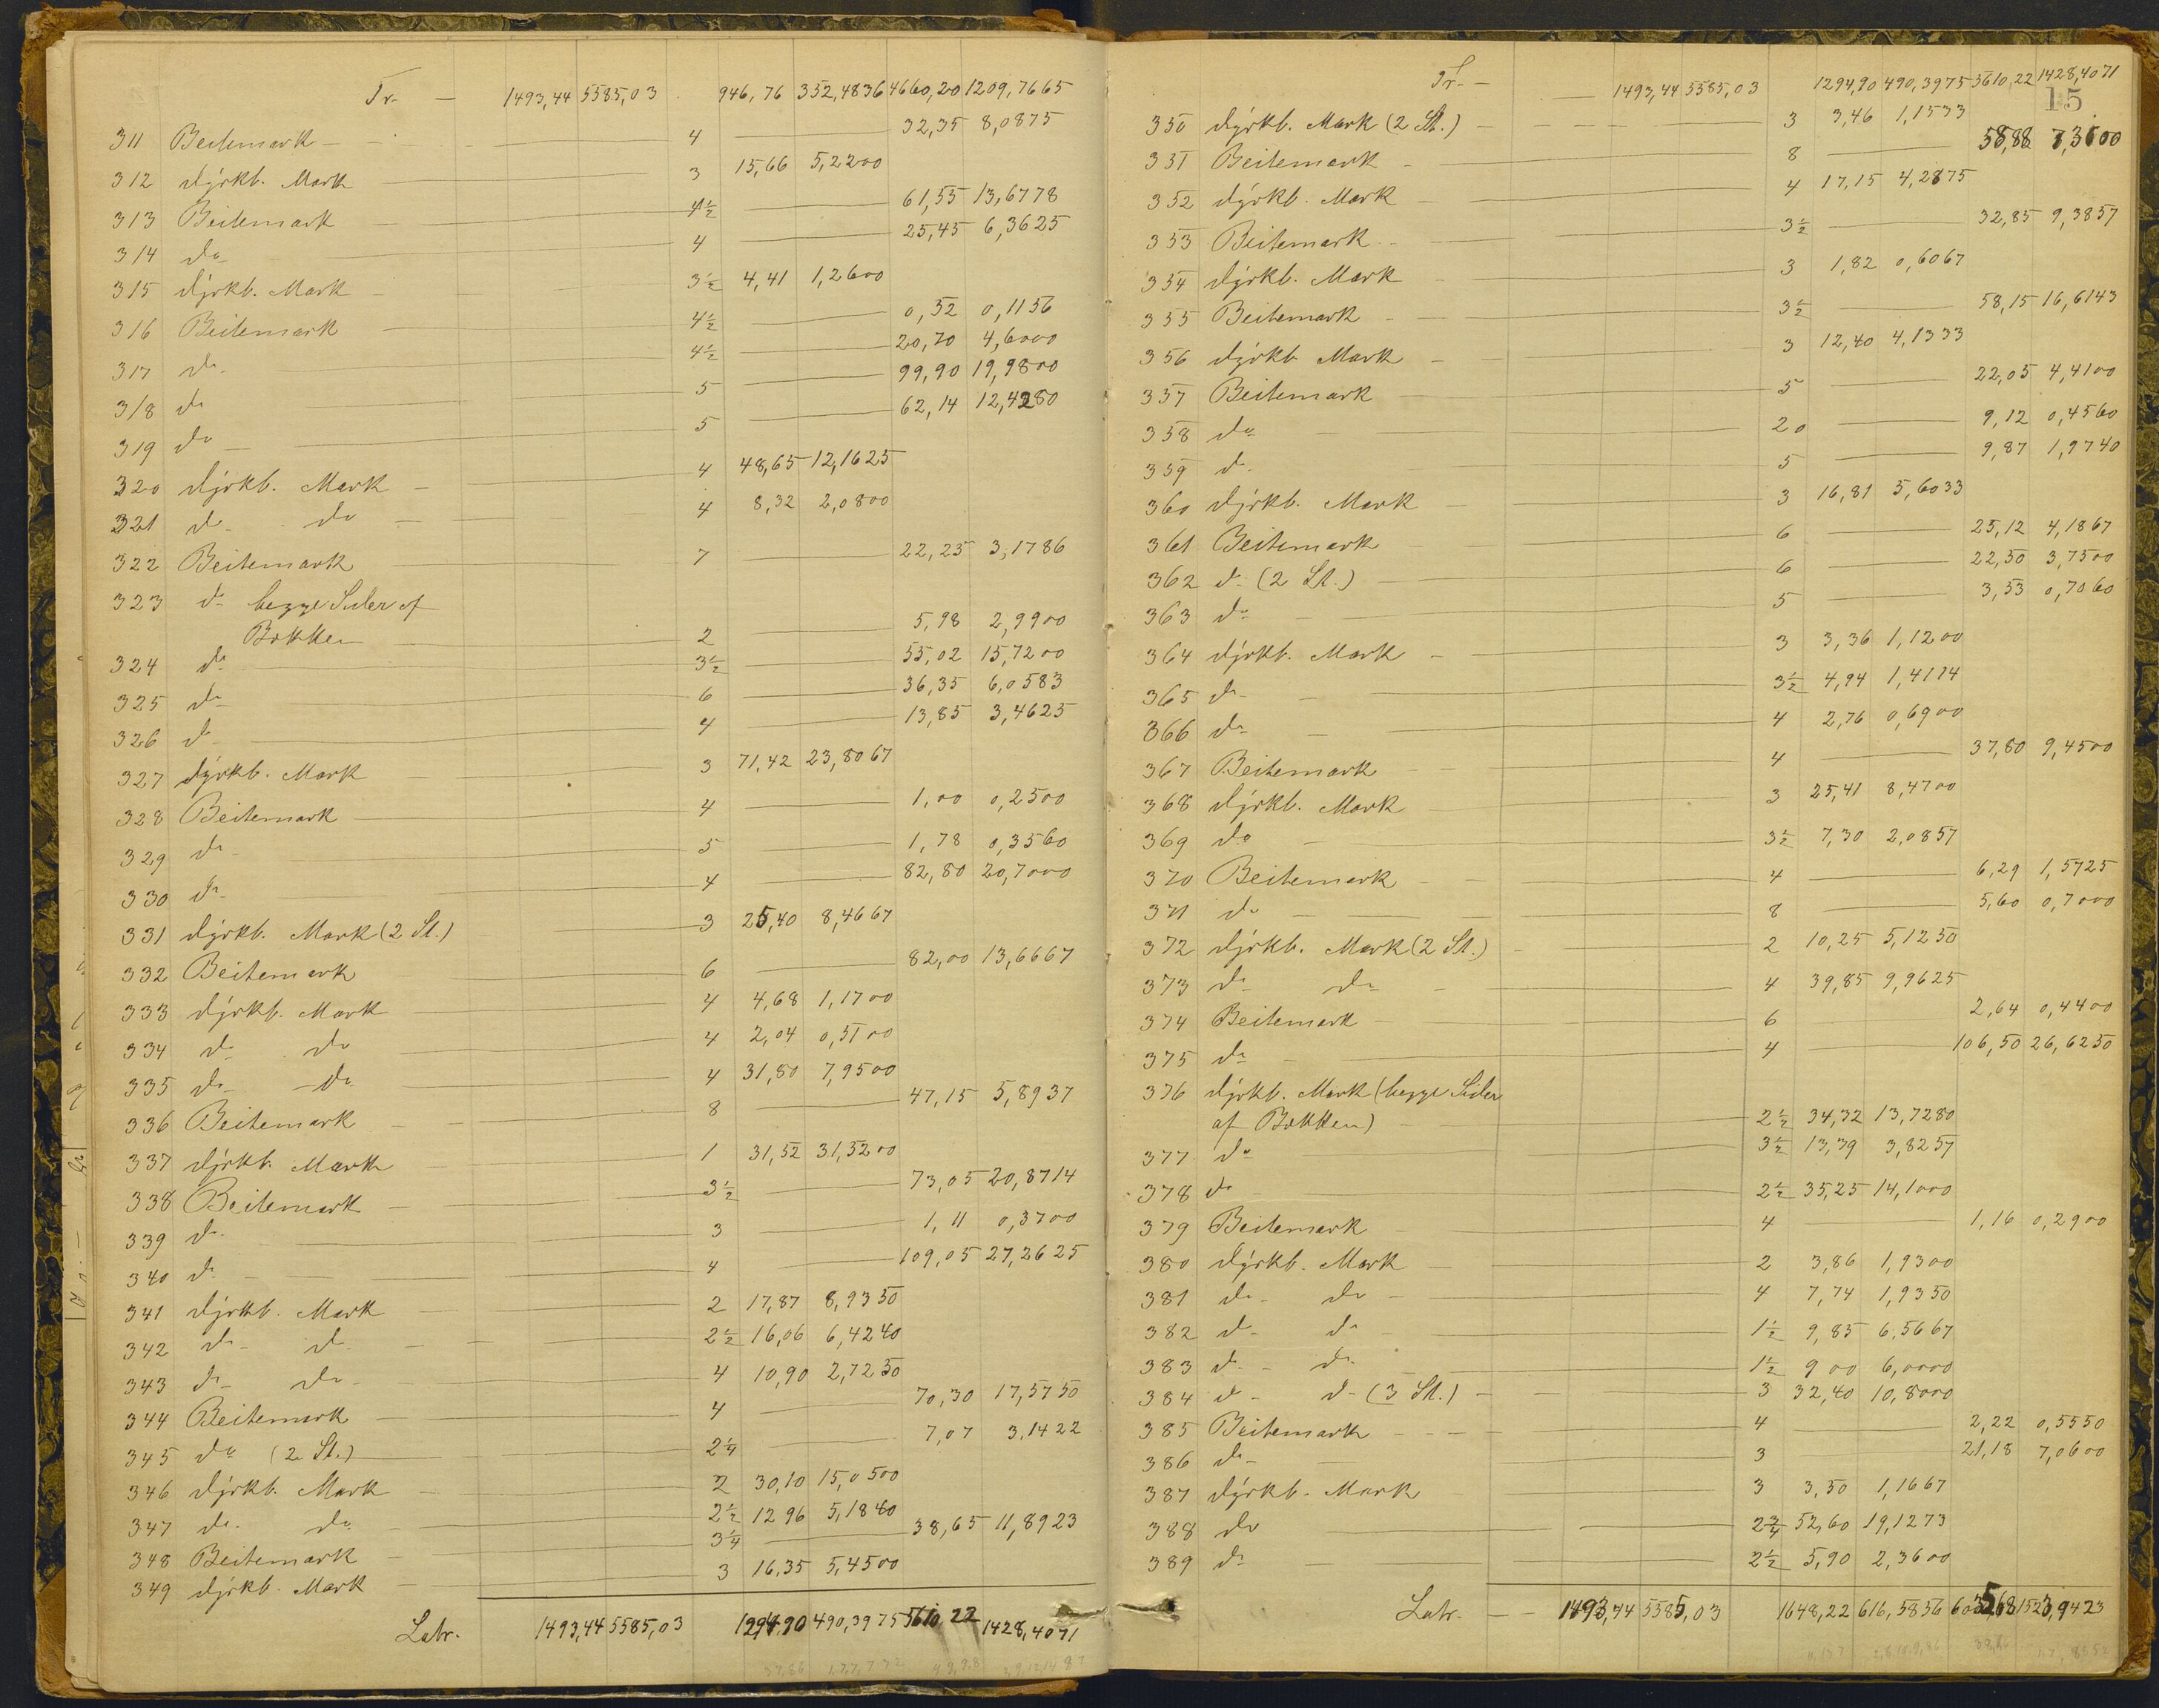 Tr. — 1493,44 5585,03 946,76 352,4836 4660,20 1209,7665
311 Beitemark — 4 — 32,35 8,0875
312 dyrkb. Mark — 3 15,66 5,2200
313 Beitemark — 4½ — 61,55 13,6778
314 do — 4 — 25,45 6,3625
315 dyrkb. Mark — 3½ 4,41 1,2600
316 Beitemark — 4½ — 0,52 0,1156
317 do — 4½ — 20,70 4,6000
318 do — 5 — 99,90 19,9800
319 do — 5 — 62,14 12,4280
320 dyrkb. Mark — 4 48,65 12,1625
321 do do — 4 8,32 2,0800
322 Beitemark — 7 — 22,25 3,1786
323 do begge Sider af
Bækken — 2 — 5,98 2,9900
324 do — 3½ — 55,02 15,7200
325 do — 6 — 36,35 6,0583
326 do — 4 — 13,85 3,4625
327 dyrkb. Mark — 3 71,42 23,8067
328 Beitemark — 4 — 1,00 0,2500
329 do — 5 — 1,78 0,3560
330 do — 4 — 82,80 20,7000
331 dyrkb. Mark (2 St.) — 3 25,40 8,4667
332 Beitemark — 6 — 82,00 13,6667
333 dyrkb. Mark — 4 4,68 1,1700
334 do do — 4 2,04 0,5100
335 do do — 4 31,80 7,9500
336 Beitemark — 8 — 47,15 5,8937
337 dyrkb. Mark — 1 31,52 31,5200
338 Beitemark — 3½ — 73,05 20,8714
339 do — 3 — 1,11 0,3700
340 do — 4 — 109,05 27,2625
341 dyrkb. Mark — 2 17,87 8,9350
342 do do — 2½ 16,06 6,4240
343 do do — 4 10,90 2,7250
344 Beitemark — 4 — 70,30 17,5750
345 do (2 St.) — 2¼ — 7,07 3,1422
346 dyrkb. Mark — 2 30,10 15,0500
347 do do — 2½ 12 96 5,1840
348 Beitemark — 3¼ — 38,65 11,8923
349 dyrkb. Mark — 3 16,35 5,4500
Latr. 1493,44 5585,03 1294,90 490,3975 5610,22 1428,4071
15
Tr. — 1493,44 5585,03 1294,90 490,3975 5610,22 1428,4071
350 dyrkb. Mark (2 St.) — 3 3,46 1,1533
351 Beitemark — 8 — 58,88 7,3600
352 dyrkb. Mark — 4 17,15 4,2875
353 Beitemark — 3½ — 32,85 9,3857
354 dyrkb. Mark — 3 1,82 0,6067
355 Beitemark — 3½ — 58,15 16,6143
356 dyrkb Mark — 3 12,40 4,1333
357 Beitemark — 5 — 22,05 4,4100
358 do — 20 — 9,12 0,4560
359 do — 5 — 9,87 1,9740
360 dyrkb. Mark — 3 16,81 5,6033
361 Beitemark — 6 — 25,12 4,1867
362 do (2 St.) — 6 — 22,50 3,7500
363 do — 5 — 3,53 0,7060
364 dyrkb. Mark — 3 3,36 1,1200
365 do — 3½ 4,94 1,4114
366 do — 4 2,76 0,6900
367 Beitemark — 4 — 37,80 9,4500
368 dyrkb. Mark — 3 25,41 8,4700
369 do — 3½ 7,30 2,0857
370 Beitemark — 4 — 6,29 1,5725
371 do — 8 — 5,60 0,7000
372 dyrkb. Mark (2 St.) — 2 10,25 5,1250
373 do do — 4 39,85 9,9625
374 Beitemark — 6 — 2,64 0,4400
375 do — 4 — 106,50 26,6250
376 dyrkb. Mark (begge Sider
af Bækken) — 2½ 34,32 13,7280
377 do — 3½ 13,39 3,8257
378 do — 2½ 35,25 14,1000
379 Beitemark — 4 — 1,16 0,2900
380 dyrkb. Mark — 2 3,86 1,9300
381 do do — 4 7,74 1,9350
382 do do — 1½ 9,85 6,5667
383 do do — 1½ 9 00 6,0000
384 do do (3 St.) — 3 32,40 10,8000
385 Beitemark — 4 — 2,22 0,5550
386 do — 3 — 21,18 7,0600
387 dyrkb. Mark — 3 3,50 1,1667
388 do — 2¾ 52,60 19,1273
389 do — 2½ 5,90 2,3600
Latr. — 1493,44 5585,03 1648,22 616,5856 6035,68 1523,9423